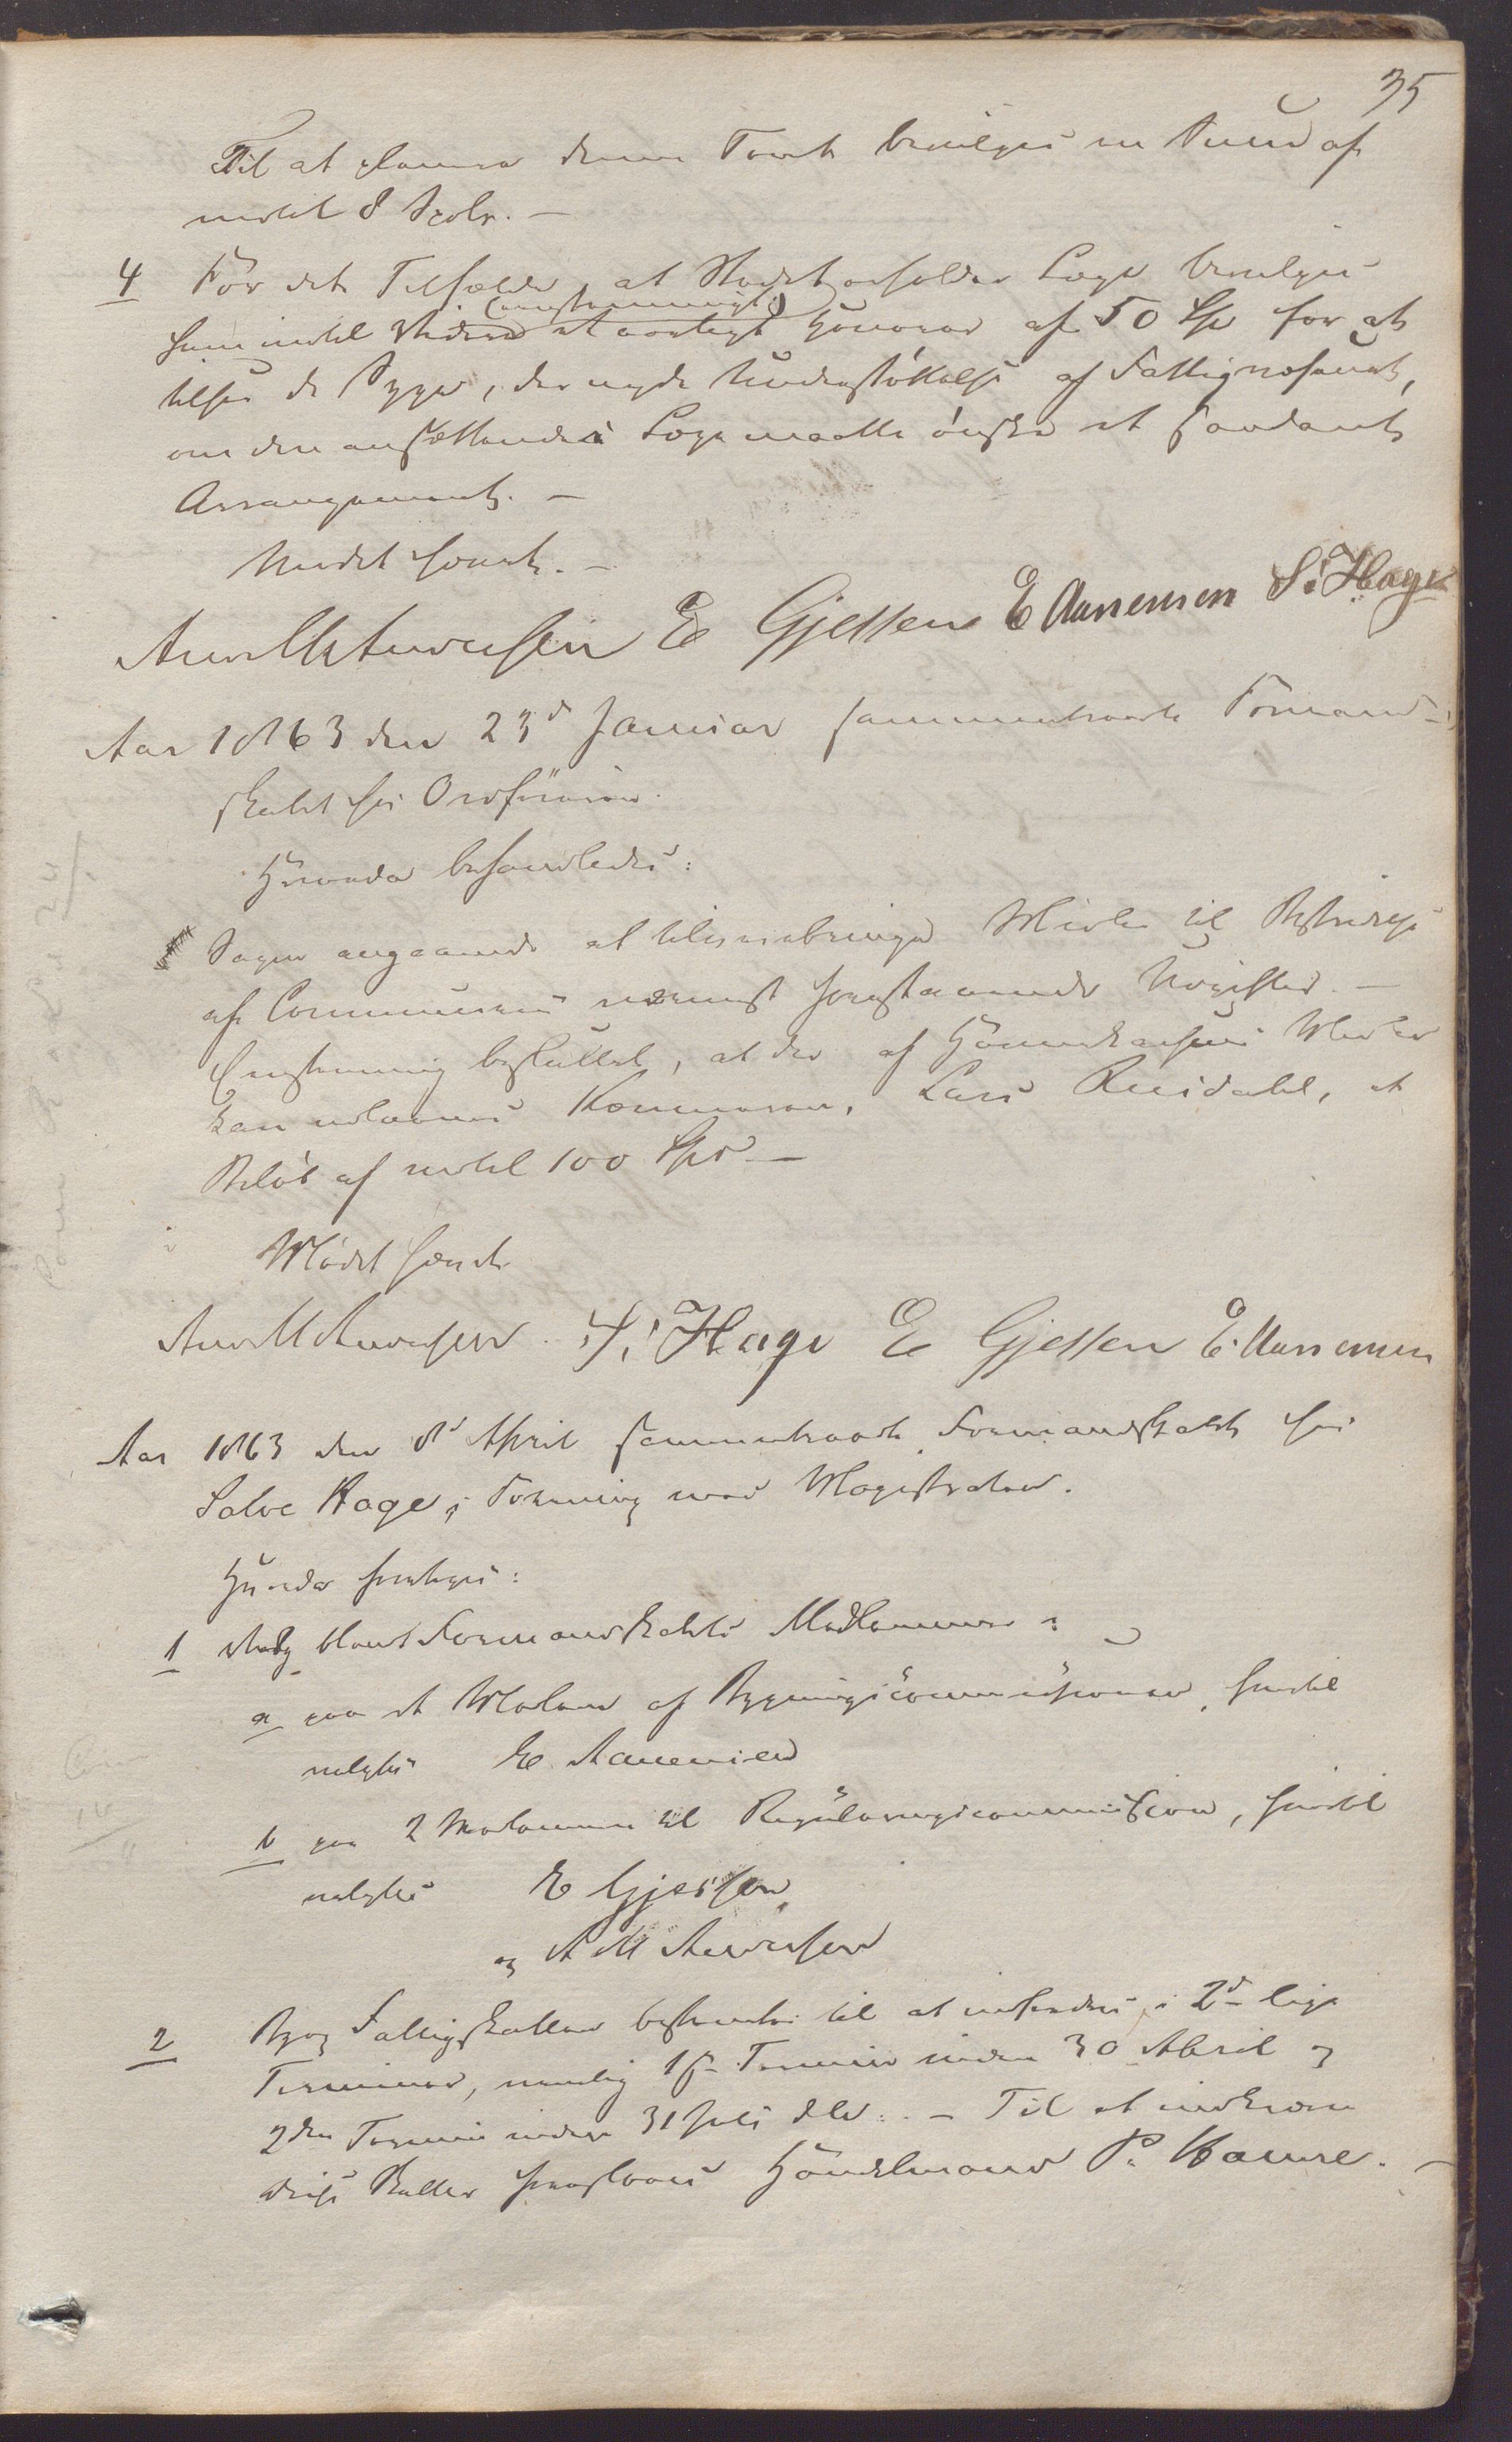 35
Til at planere denne Tomt bevilges en Sum af
indtil 8 Spdlr. —
4 For det Tilfælde, at Stedet erholder Læge bevilges
(enstemmigt)
ham indtil Videre et aarligt Honorar af 50 Spd for at
tilsee de Syge, der nyde Understøttelse af Fattigvæsenet,
om den ansættendes Læge maatte ønske et saadant
Arrangement. —
Mødet hævet. —
And. M Andersen E Gjessen E Aanensen S. Hage
Aar 1863 den 23d Januar sammentraadte Formand-
skabet hos Ordføreren.
Hvorda behandledes:
Sagen angaaende at tilveiebringe Midler til Bestridelse
af Communens nærmest forestaaende Udgifter. —
Enstemmig besluttet, at der af Havnekassens Midler
kan udlaanes Kæmneren, Lars Rusdahl, et
Beløb af indtil 100 Spd —
Mødet hævet
And M Andersen S. Hage E Gjessen E. Aanensen
Aar 1863 den 8d April sammentraadte Formandskabet hos
Salve Hage, i Forening med Magistraten.
Hvorda foretoges:
1 Valg blandt Formandskabets Medlemmer:
a paa et Medlem af Bygningscommissionen, hvortil
valgtes E. Aanensen
b paa 2 Medlemmer til Reguleringscommission, hvortil
valgtes E Gjessen
og A M Andersen
2 By og Fattigskatten bestemtes til at indfordres i 2de lige
Terminer, nemlig 1ste Termin inden 30 April og
2den Termin inden 31 Juli d.A. — Til at indkræve
disse Skatter foresloges Handelsmand P. Hamre. —